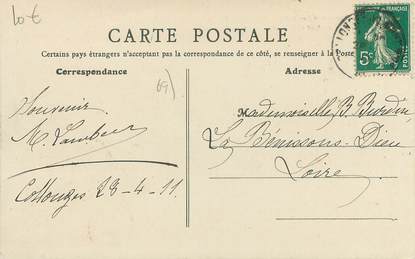 10 €
CARTE POSTALE
Certains pays étrangers n'acceptant pas la correspondance de ce côté, se renseigner à la Poste
Correspondance
Adresse
5c
69)
Souvenir
M.
Collonges 23-4-11
Mademoiselle B. Burdin
La Bénissons-Dieu
Loire